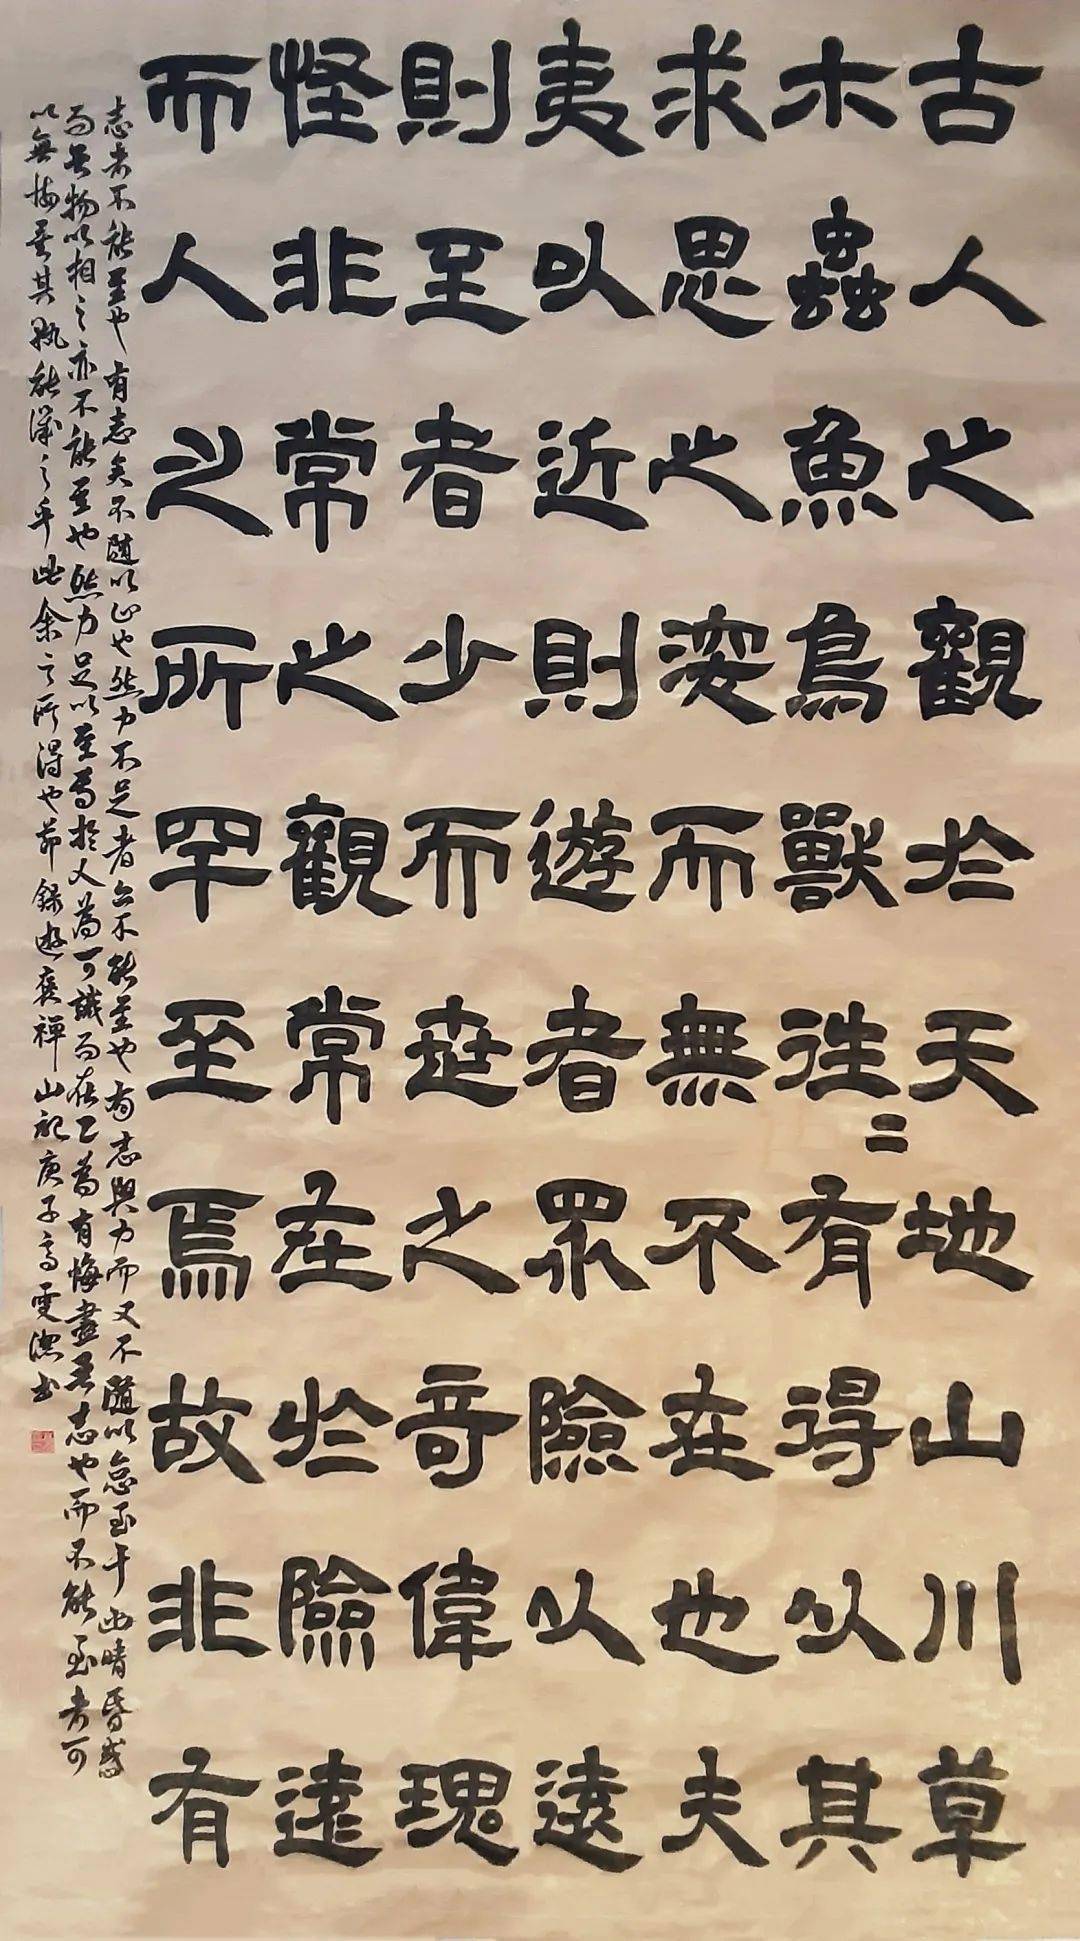 古人之觀於天地山川草
木蟲魚鳥獸往二有得以其
求思之深而無不在也夫
夷以近則遊者眾險以遠
則至者少而世之奇偉瑰
怪非常之觀常在於險遠
而人之所罕至焉故非有
志者不能至也有志矣不隨以止也然力不足者亦不能至也有志與力而又不隨以怠至于幽暗昏惑
而無物以相之亦不能至也然力足以至焉於人為可譏而在己為有悔盡吾志也而不能至者可
以無悔矣其孰能譏之乎此余之所得也節錄遊褒禪山記庚子高雯潔書